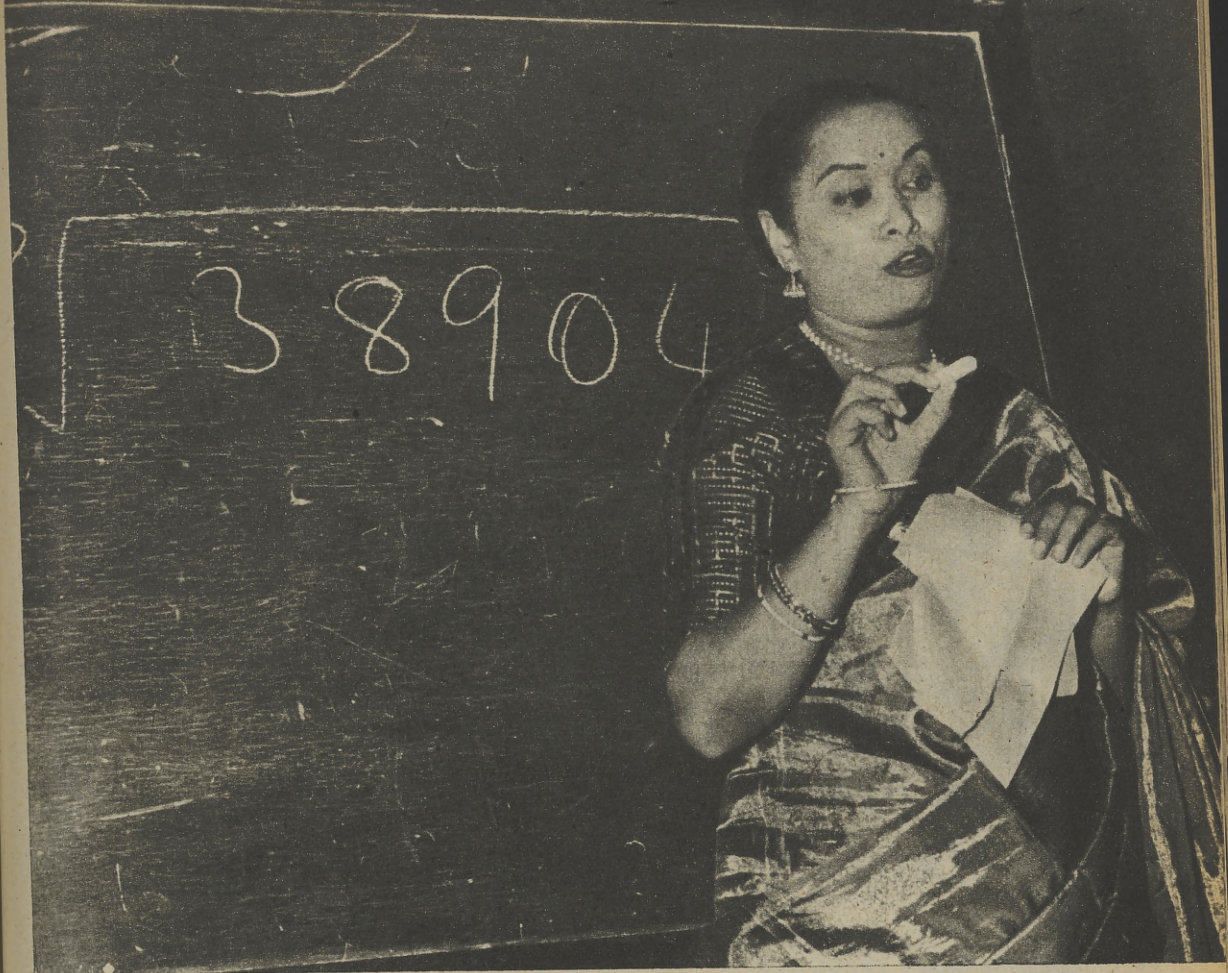 √38904